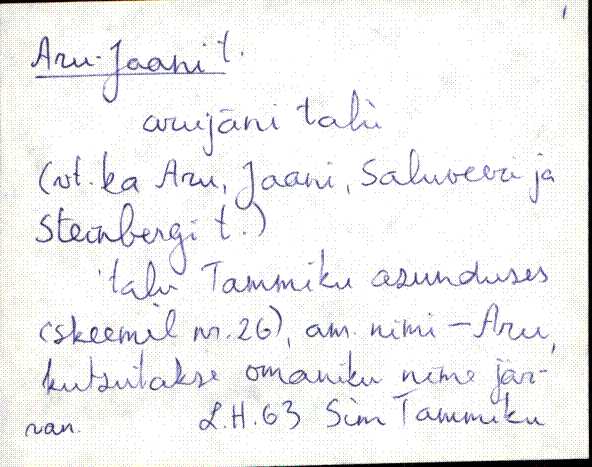 Aru-Jaani t.
arujāni talu
(vt. ka Aru, Jaani, Saluveere ja
Steinbergi t.)
talu Tammiku asunduses
(skeemil nr. 26), am. nimi – Aru,
kutsutakse omaniku nime jär-
L.H. 63 Sim Tammiku